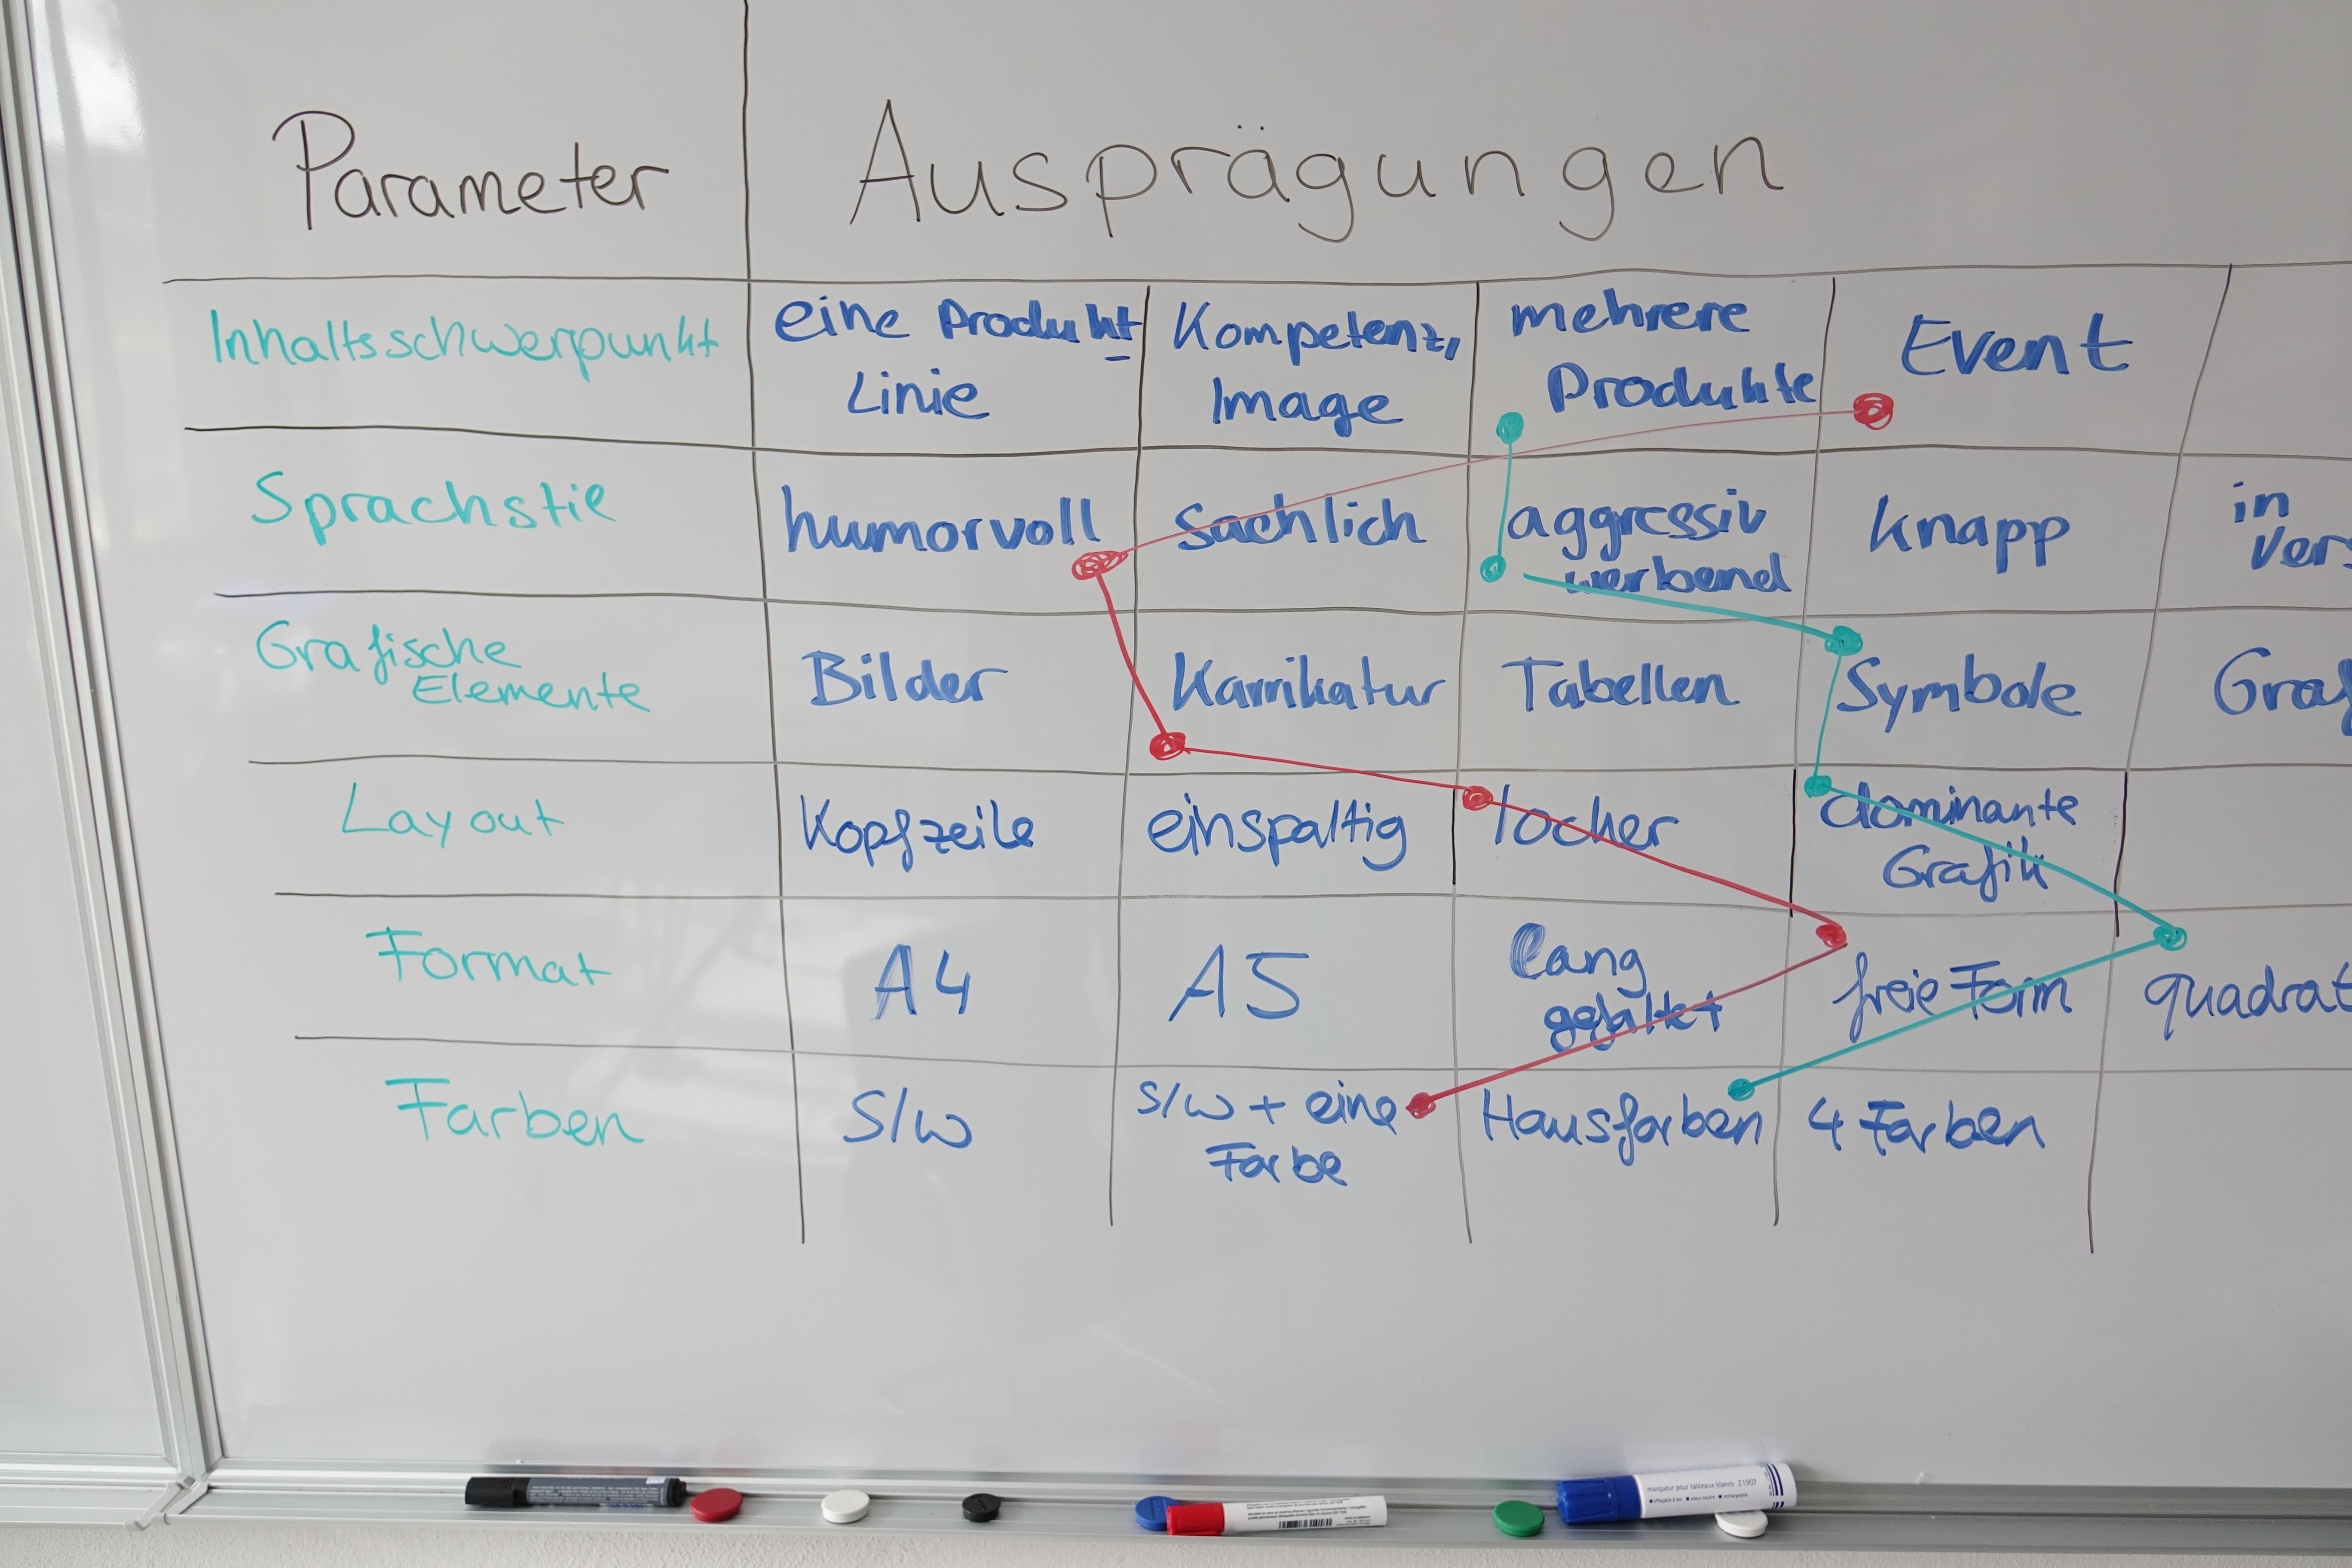 Parameter Ausprägungen
Inhaltsschwerpunkt
eine Produkt-
Linie
Kompetenz,
Image
mehrere
Produkte
Event
Sprachstil
humorvoll
sachlich
aggressiv
werbend
knapp
in
Vers
Grafische
Elemente
Bilder
Karrikatur
Tabellen
Symbole
Graf
Layout
Kopfzeile
einspaltig
locker
dominante
Grafik
Format
A4
A5
lang
gefaltet
freie Form
quadrat
Farben
S/W
S/W + eine
Farbe
Hausfarben
4 Farben
marqueur pour tableaux blancs Z1907